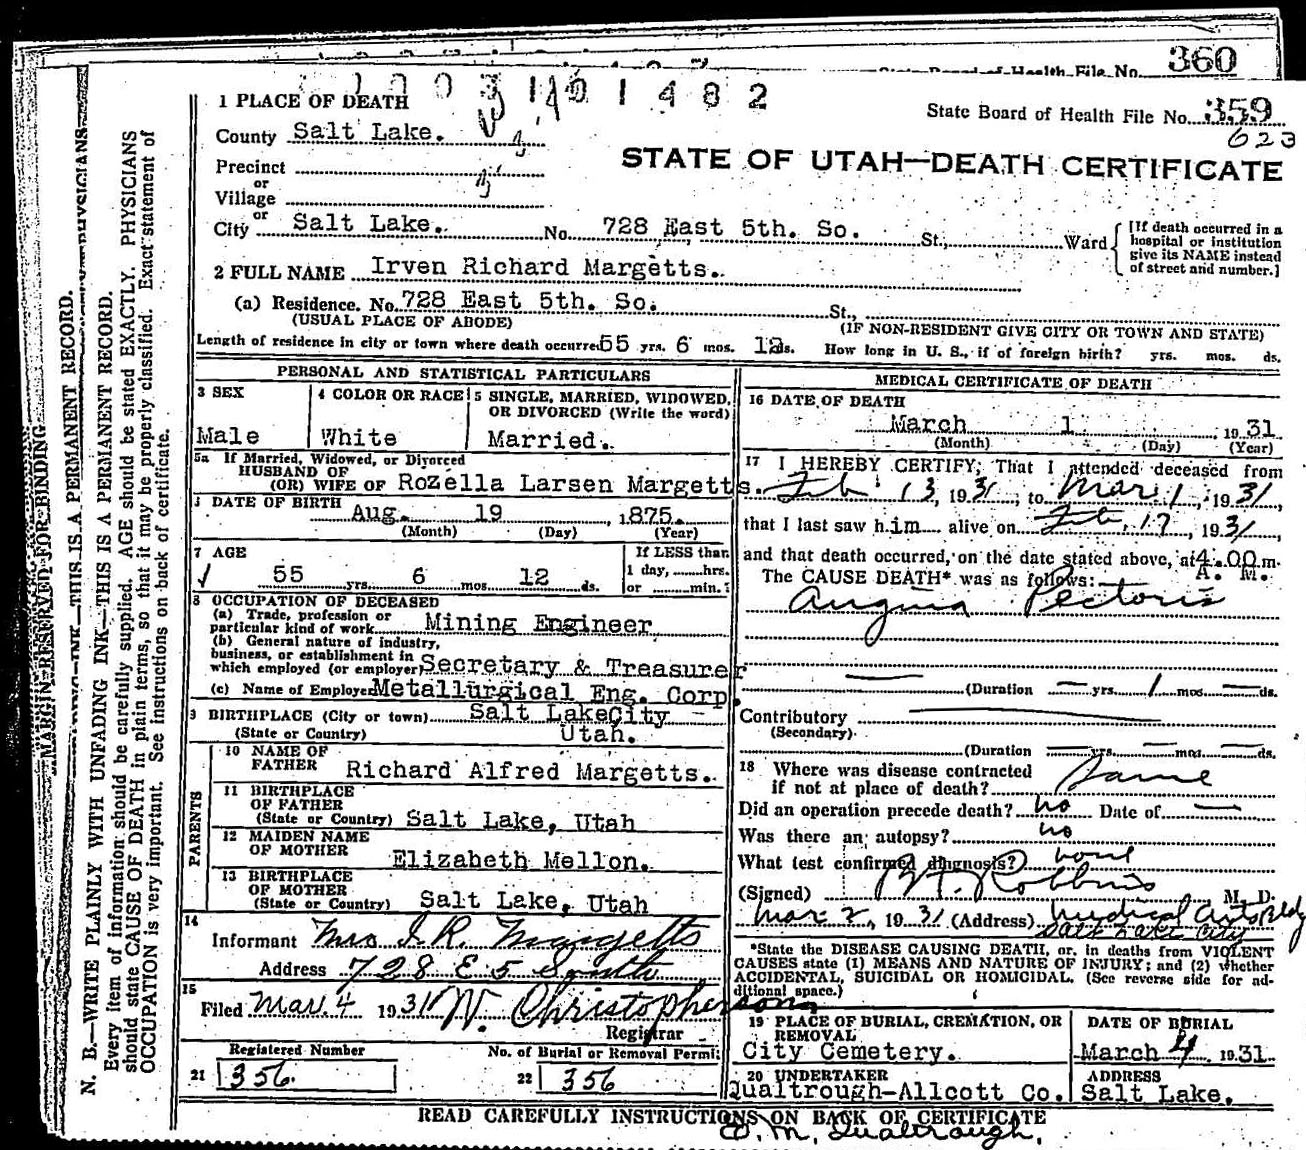 360
State Board of Health File No. 359
623
1 PLACE OF DEATH
County Salt Lake.
STATE OF UTAH—DEATH CERTIFICATE
Precinct
or
Village
or
City Salt Lake. No. 728 East 5th. So. St., Ward
[If death occurred in a hospital or institution give its NAME instead of street and number.]
2 FULL NAME Irven Richard Margetts.
(a) Residence. No. 728 East 5th. So. St.,
(USUAL PLACE OF ABODE) (IF NON-RESIDENT GIVE CITY OR TOWN AND STATE)
Length of residence in city or town where death occurred 55 yrs. 6 mos. 12 ds. How long in U. S., if of foreign birth? yrs. mos. ds.
PERSONAL AND STATISTICAL PARTICULARS
3 SEX
Male
4 COLOR OR RACE
White
5 SINGLE, MARRIED, WIDOWED, OR DIVORCED (Write the word)
Married.
5a If Married, Widowed, or Divorced
HUSBAND OF
(OR) WIFE OF Rozella Larsen Margetts.
DATE OF BIRTH
Aug. 19, 1875.
(Month) (Day) (Year)
7 AGE
55 yrs. 6 mos. 12 ds.
If LESS than
1 day, hrs.
or min.?
8 OCCUPATION OF DECEASED
(a) Trade, profession or
particular kind of work Mining Engineer
(b) General nature of industry,
business, or establishment in
which employed (or employer) Secretary & Treasurer
(c) Name of Employer Metallurgical Eng. Corp.
9 BIRTHPLACE (City or town) Salt Lake City
(State or Country) Utah.
PARENTS
10 NAME OF
FATHER Richard Alfred Margetts.
11 BIRTHPLACE
OF FATHER
(State or Country) Salt Lake, Utah
12 MAIDEN NAME
OF MOTHER Elizabeth Mellon.
13 BIRTHPLACE
OF MOTHER
(State or Country) Salt Lake, Utah
14
Informant Mrs I. R. Margetts
Address 728 E 5 South
15
Filed Mar. 4 1931 W. Christophersons
Registrar
Registered Number
21 356
No. of Burial or Removal Permit
22 356
MEDICAL CERTIFICATE OF DEATH
16 DATE OF DEATH
March 1 1931
(Month) (Day) (Year)
17 I HEREBY CERTIFY, That I attended deceased from
Feb 13, 1931, to Mar 1, 1931,
that I last saw him alive on Feb, 17, 1931,
and that death occurred, on the date stated above, at 4:00 m.
A. M.
The CAUSE DEATH* was as follows:
Angina Pectoris
(Duration — yrs. 1 mos. — ds.
Contributory
(Secondary)
(Duration — yrs. — mos. — ds.
18 Where was disease contracted
if not at place of death? Same
Did an operation precede death? no Date of —
Was there an autopsy? no
What test confirmed diagnosis?
(Signed) Robbins M. D.
Mar 2, 1931 (Address) Medical Arts Bldg
Salt Lake City
*State the DISEASE CAUSING DEATH, or, in deaths from VIOLENT
CAUSES state (1) MEANS AND NATURE OF INJURY; and (2) whether
ACCIDENTAL, SUICIDAL OR HOMICIDAL. (See reverse side for ad-
ditional space.)
19 PLACE OF BURIAL, CREMATION, OR
REMOVAL
City Cemetery.
DATE OF BURIAL
March 4 1931.
20 UNDERTAKER
Qualtrough-Allcott Co.
ADDRESS
Salt Lake.
READ CAREFULLY INSTRUCTIONS ON BACK OF CERTIFICATE
O. M. Qualtrough.
MARGIN RESERVED FOR BINDING
N. B.—WRITE PLAINLY WITH UNFADING INK—THIS IS A PERMANENT RECORD.
Every item of information should be carefully supplied. AGE should be stated EXACTLY. PHYSICIANS
should state CAUSE OF DEATH in plain terms, so that it may be properly classified. Exact statement of
OCCUPATION is very important. See instructions on back of certificate.